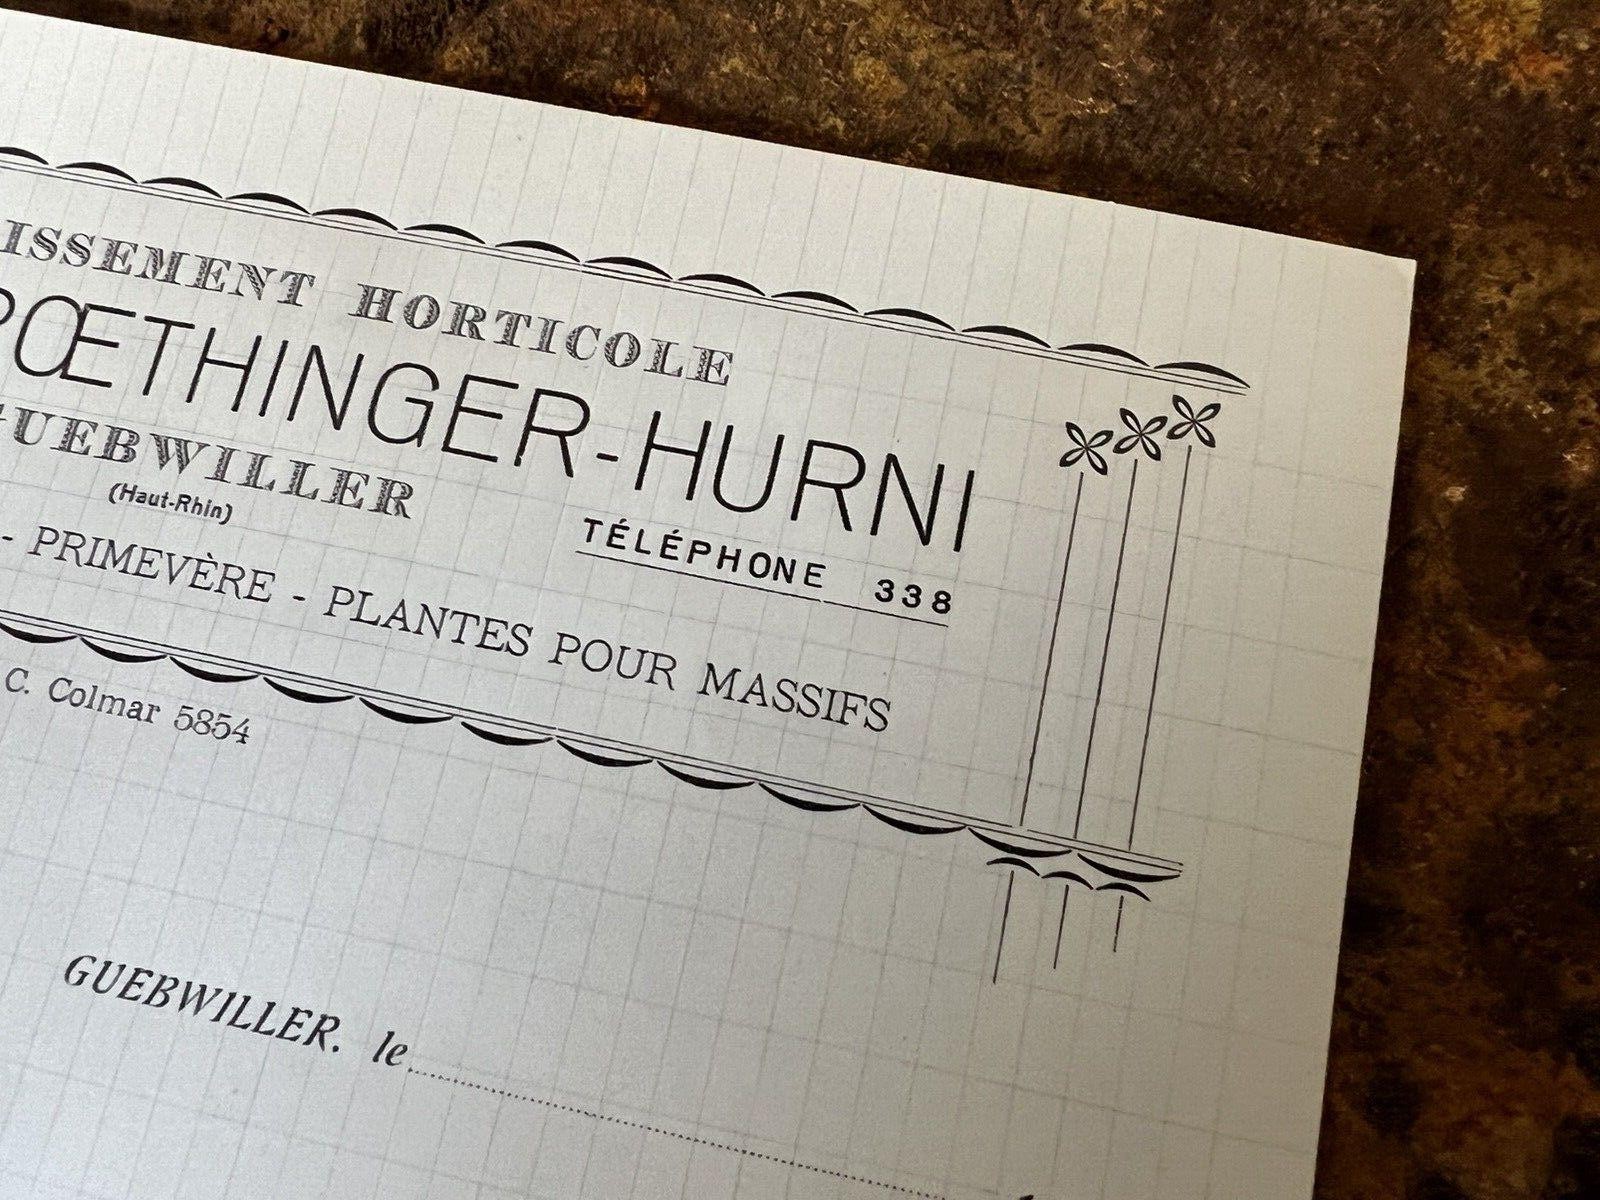 ISSEMENT HORTICOLE
PŒTHINGER-HURNI
GUEBWILLER
(Haut-Rhin)
TÉLÉPHONE 338
- PRIMEVÈRE - PLANTES POUR MASSIFS
C. Colmar 5854
GUEBWILLER. le